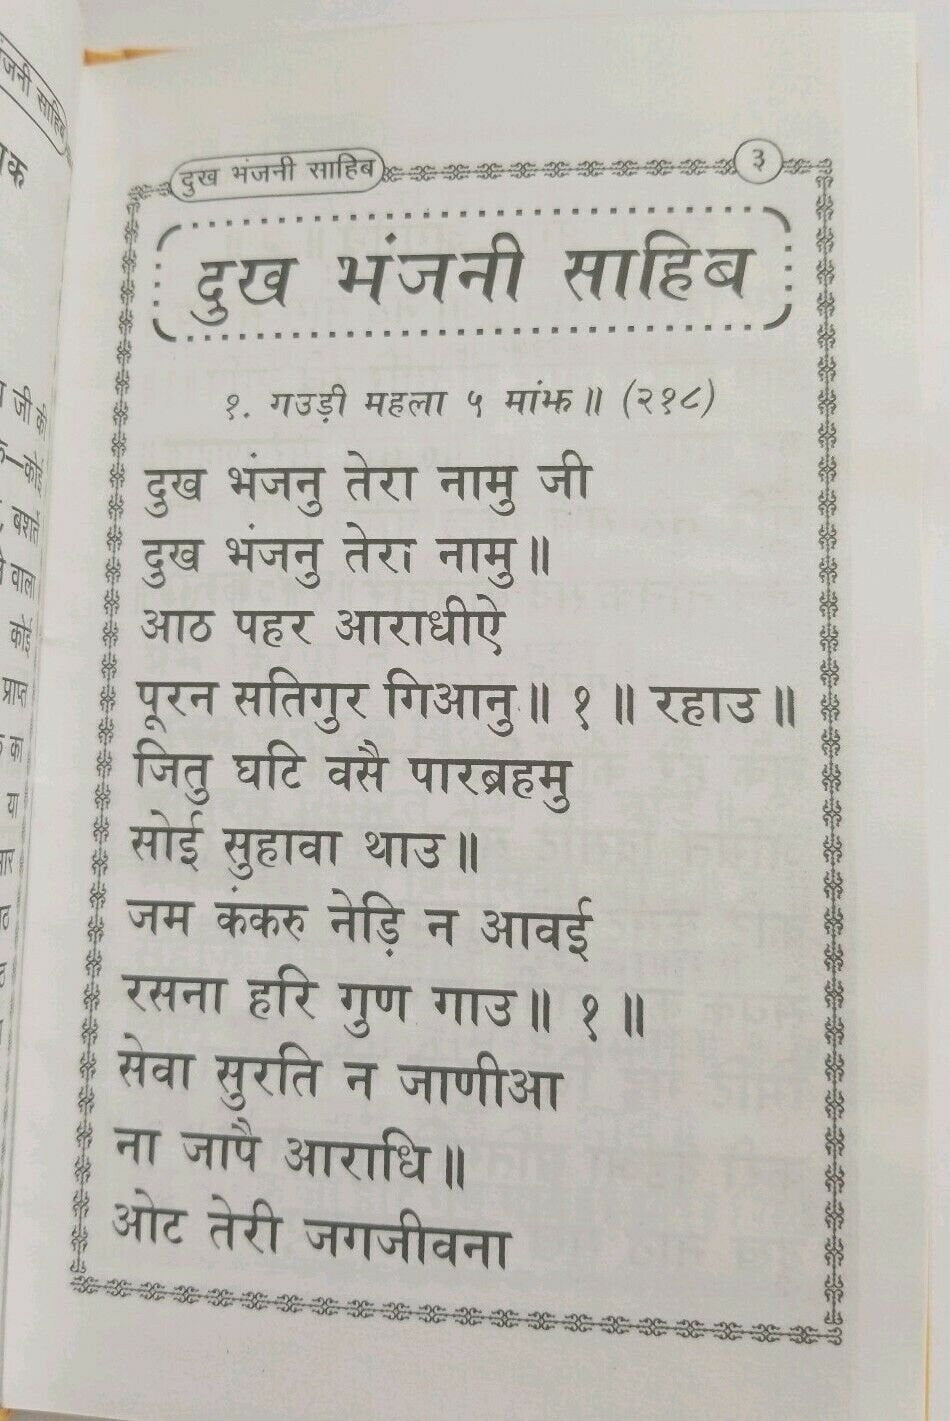 भंजनी साहिब
जी की
कोई
बशर्ते
वाला
कोई
प्राप्त
का
या
दुख भंजनी साहिब
३
दुख भंजनी साहिब
१. गउड़ी महला ५ मांझ॥ (२१८)
दुख भंजनु तेरा नामु जी
दुख भंजनु तेरा नामु॥
आठ पहर आराधीऐ
पूरन सतिगुर गिआनु॥ १॥ रहाउ॥
जितु घटि वसै पारब्रहमु
सोई सुहावा थाउ॥
जम कंकरु नेड़ि न आवई
रसना हरि गुण गाउ॥ १॥
सेवा सुरति न जाणीआ
ना जापै आराधि॥
ओट तेरी जगजीवना